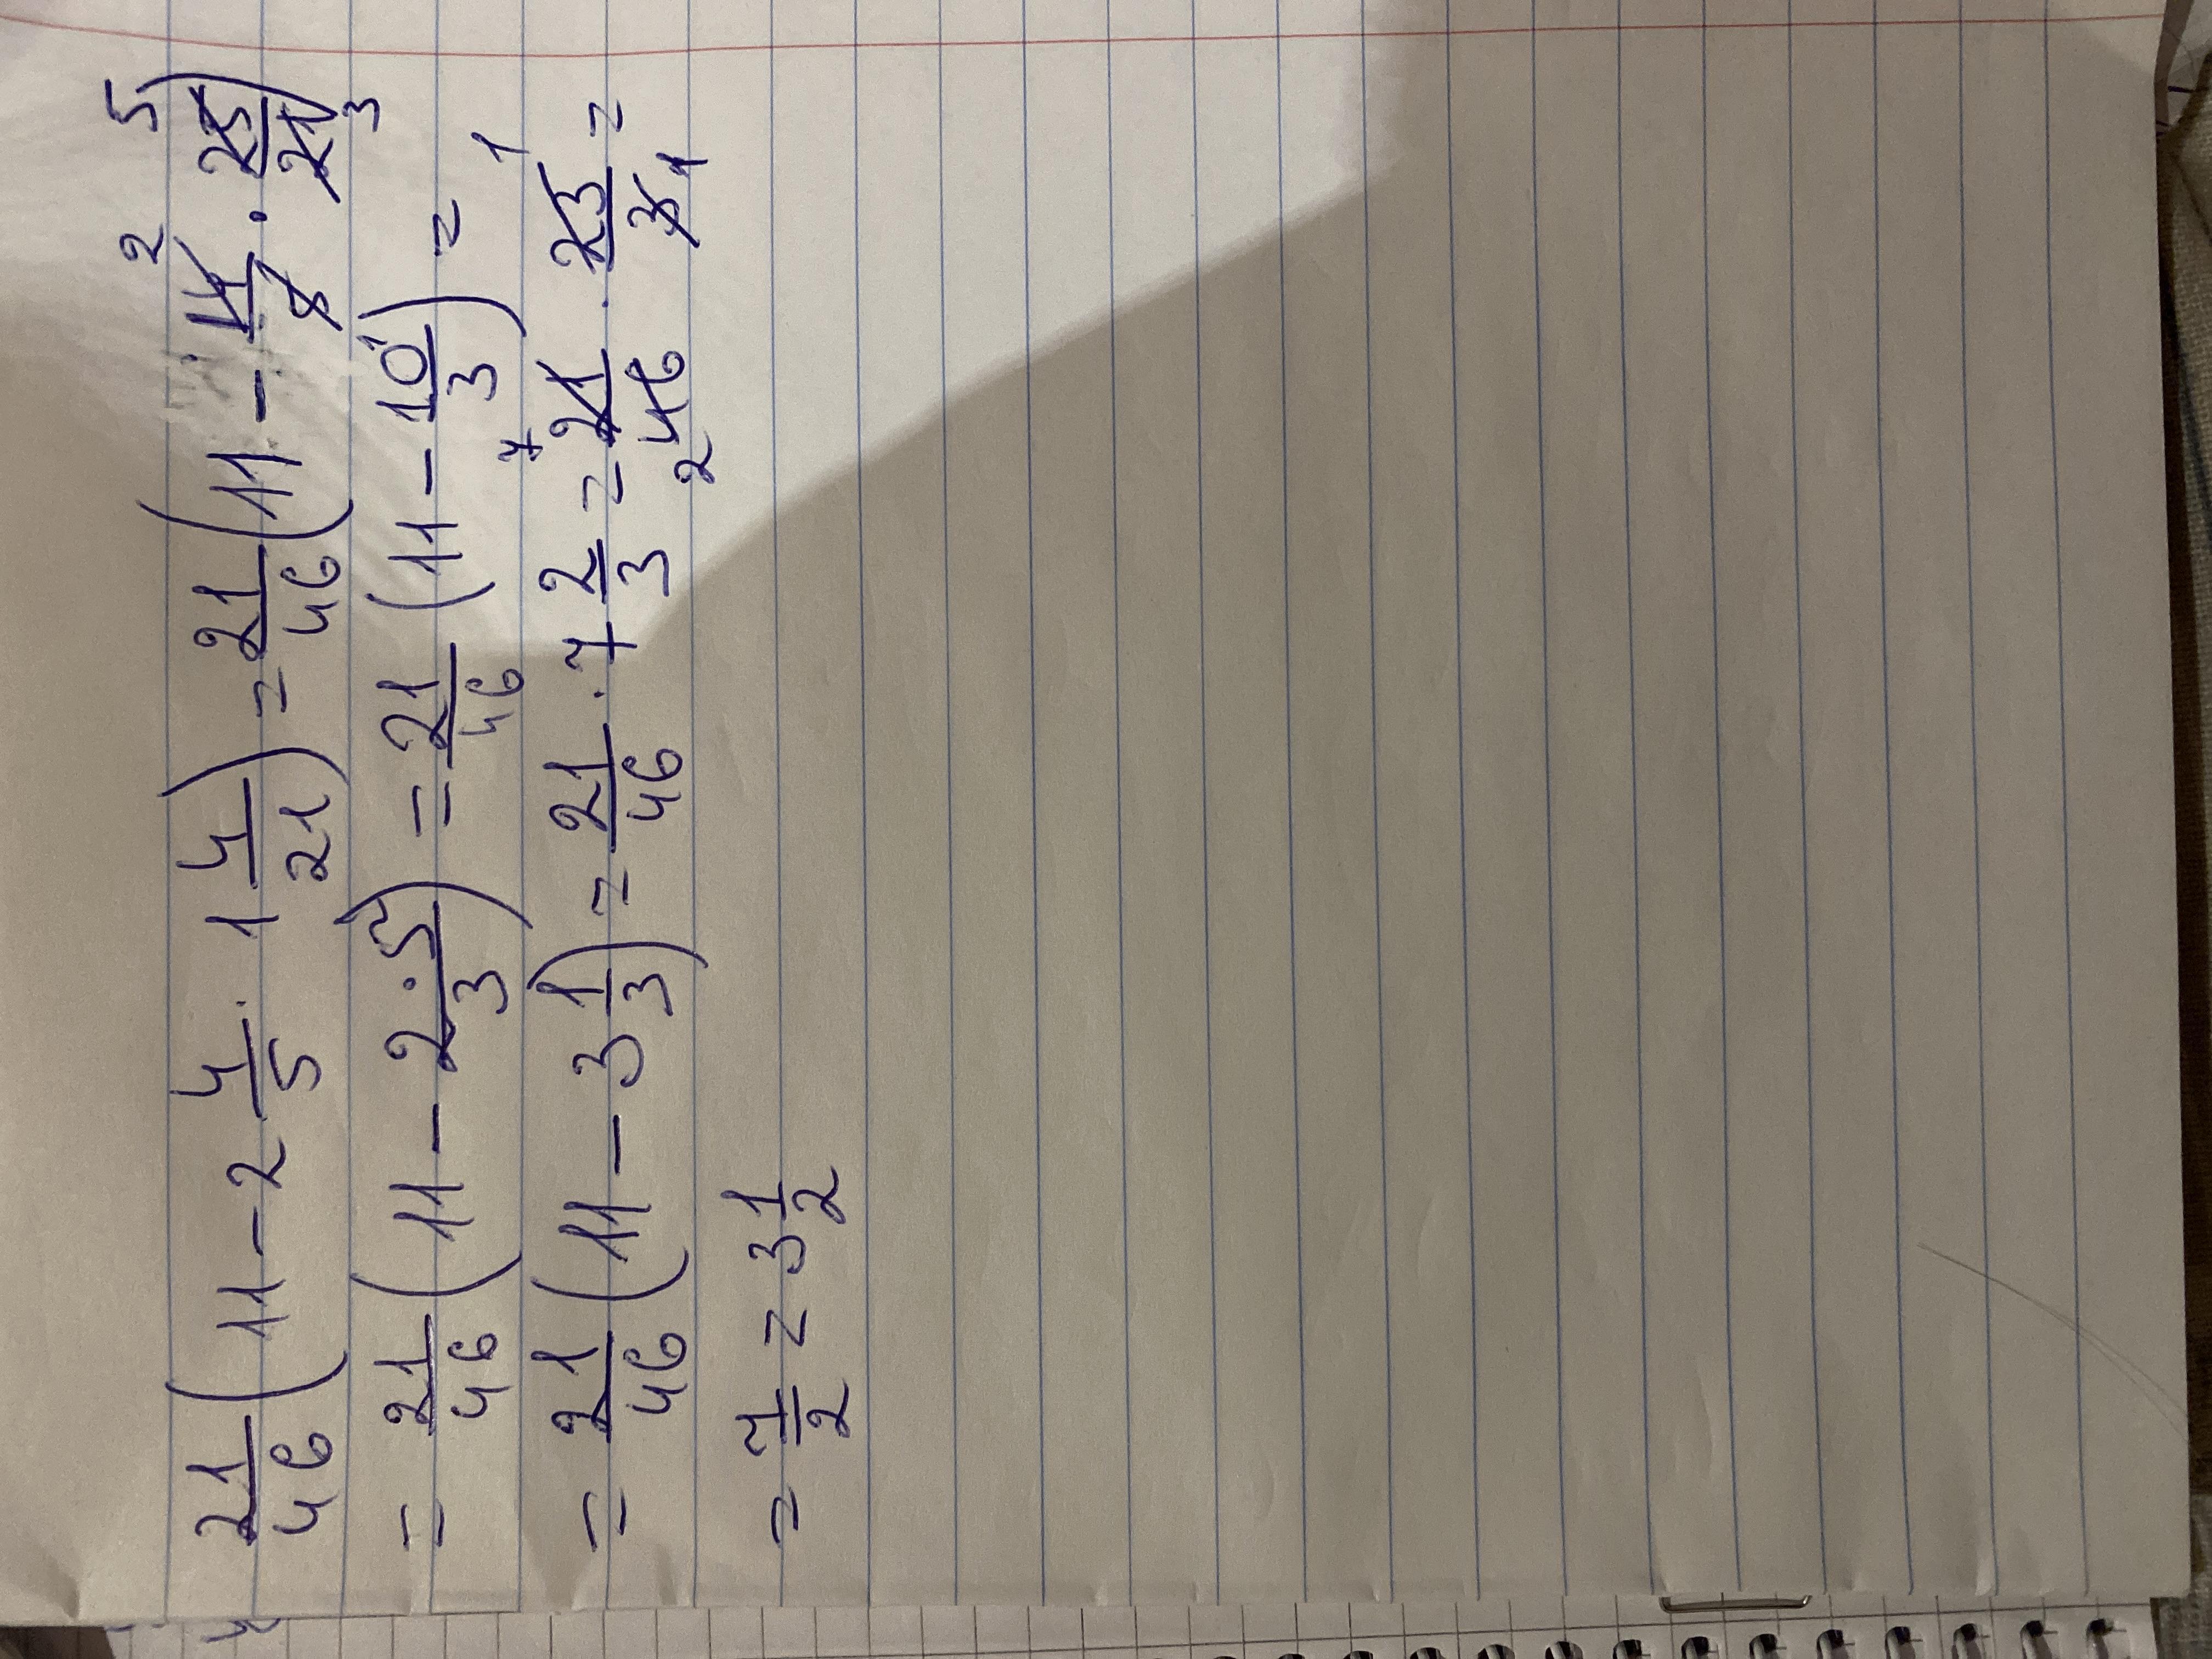 21/46 (11 - 2 4/5 · 1 4/21) = 21/46 (11 - 14/5 · 25/21) 2 5 3
= 21/46 (11 - 2·5/3) = 21/46 (11 - 10/3) =
= 21/46 (11 - 3 1/3) = 21/46 · 7 2/3 = 21/46 · 23/3 = 7 1 2 1
= 7/2 = 3 1/2